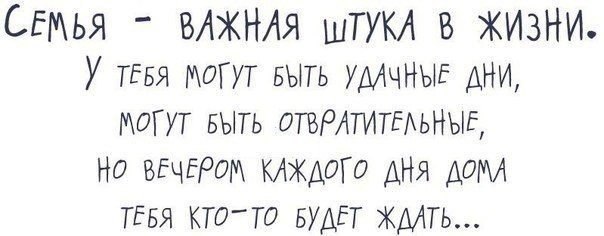 Семья - важная штука в жизни.
У тебя могут быть удачные дни,
могут быть отвратительные,
но вечером каждого дня дома
тебя кто-то будет ждать...